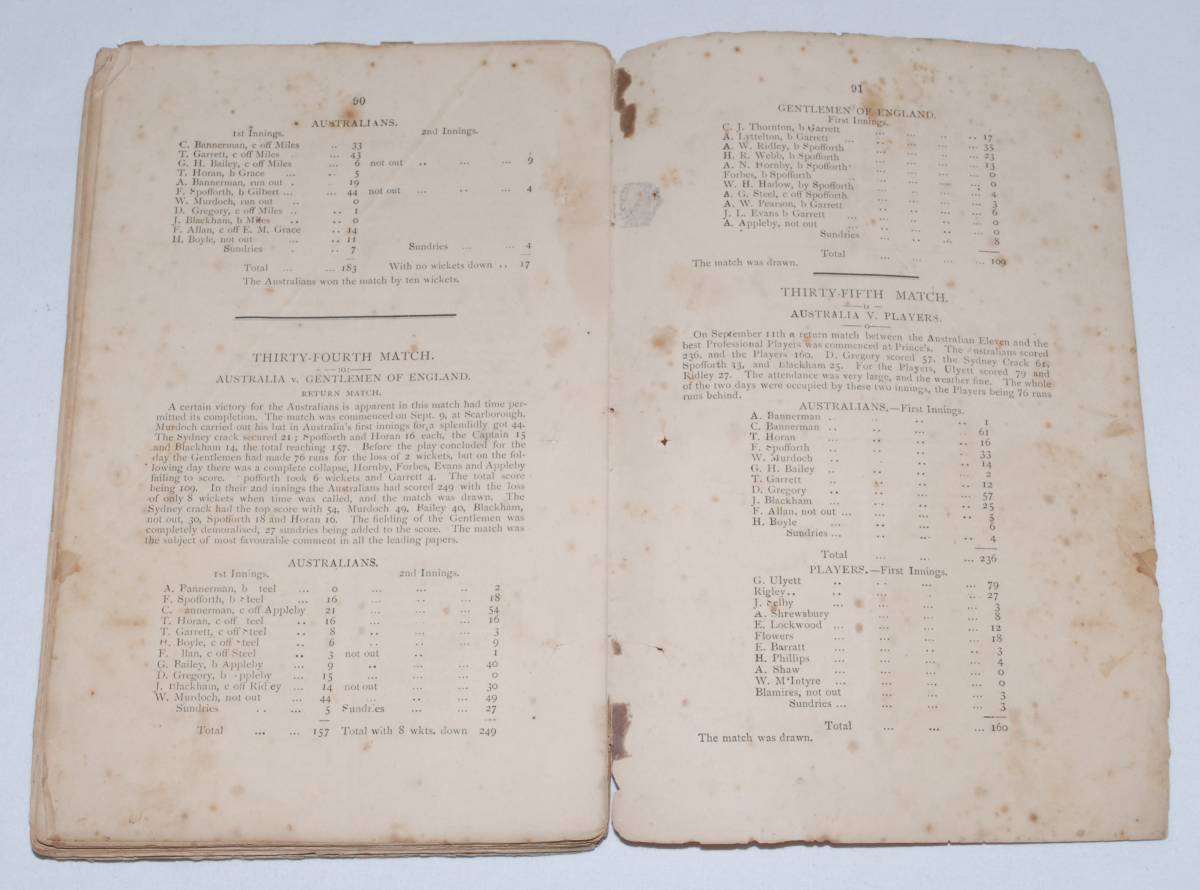 90
AUSTRALIANS.
1st Innings. 2nd Innings.
C. Bannerman, c off Miles .. 33
T. Garrett, c off Miles .. 43
G. H. Bailey, c off Miles ... 6 not out .. ... ... 9
T. Horan, b Grace ... .. 5
A. Bannerman, run out . 19
F. Spofforth, b Gilbert ... ... 44 not out ... .. ... 4
W. Murdoch, run out .. 0
D. Gregory, c off Miles .. .. 1
J. Blackham, b Miles .. .. 0
F. Allan, c off E. M. Grace .. 14
H. Boyle, not out ... .. 11
Sundries . .. 7 Sundries ... ... 4
Total ... ... 183 With no wickets down .. 17
The Australians won the match by ten wickets.
THIRTY-FOURTH MATCH.
—:o:—
AUSTRALIA v. GENTLEMEN OF ENGLAND.
RETURN MATCH.
A certain victory for the Australians is apparent in this match had time per-
mitted its completion. The match was commenced on Sept. 9, at Scarborough.
Murdoch carried out his bat in Australia's first innings for a splendidly got 44.
The Sydney crack secured 21; Spofforth and Horan 16 each, the Captain 15
and Blackham 14, the total reaching 157. Before the play concluded for the
day the Gentlemen had made 76 runs for the loss of 2 wickets, but on the fol-
lowing day there was a complete collapse, Hornby, Forbes, Evans and Appleby
failing to score. pofforth took 6 wickets and Garrett 4. The total score
being 109. In their 2nd innings the Australians had scored 249 with the loss
of only 8 wickets when time was called, and the match was drawn. The
Sydney crack had the top score with 54, Murdoch 49, Bailey 40, Blackham,
not out, 30, Spofforth 18 and Horan 16. The fielding of the Gentlemen was
completely demoralised, 27 sundries being added to the score. The match was
the subject of most favourable comment in all the leading papers.
AUSTRALIANS.
1st Innings. 2nd Innings.
A. Bannerman, b teel ... 0 ... ... .. 2
F. Spofforth, b Steel ... 16 ... ... ... 18
C. annerman, c off Appleby 21 ... ... ... 54
T. Horan, c off teel .. 16 ... ... ... 16
T. Garrett, c off Steel .. 8 .. ... ... 3
H. Boyle, c off teel .. 6 .. ... ... 9
F. llan, c off Steel .. 3 not out .. ... 1
G. Bailey, b Appleby ... 9 .. ... ... 40
D. Gregory, b ppleby ... 15 ... ... ... 0
J. Blackham, c off Rid ey ... 14 not out ... ... 30
W. Murdoch, not out ... 44 .. ... 49
Sundries .. ... 5 Sundries ... ... 27
Total ... ... 157 Total with 8 wkts. down 249
91
GENTLEMEN OF ENGLAND.
First Innings.
C. J. Thornton, b Garrett ... ... .. .. 17
A. Lyttelton, b Garrett ... ... ... .. .. 35
A. W. Ridley, b Spofforth ... ... ... ... 23
H. R. Webb, b Spofforth ... ... ... ... 13
A. N. Hornby, b Spofforth ... ... ... ... 0
Forbes, b Spofforth .. ... ... ... ... 0
W. H. Hadow, by Spofforth ... ... ... ... 0
A. G. Steel, c off Spofforth ... ... ... ... 4
A. W. Pearson, b Garrett ... ... ... ... 3
J. L. Evans b Garrett ... ... ... ... .. 6
A. Appleby, not out ... ... ... ... ... 0
Sundries ... ... ... ... 8
Total ... ... ... 109
The match was drawn.
THIRTY-FIFTH MATCH.
AUSTRALIA V. PLAYERS.
—o—
On September 11th a return match between the Australian Eleven and the
best Professional Players was commenced at Prince's. The Australians scored
236, and the Players 160. D. Gregory scored 57, the Sydney Crack 61,
Spofforth 33, and Blackham 25. For the Players, Ulyett scored 79 and
Ridley 27. The attendance was very large, and the weather fine. The whole
of the two days were occupied by these two innings, the Players being 76 runs
runs behind.
AUSTRALIANS,—First Innings.
A. Bannerman . .. .. .. 1
C. Bannerman .. .. ... ... 61
T. Horan .. ... ... ... 16
F. Spofforth .. ... ... 33
W. Murdoch .. .. ... .. 14
G. H. Bailey .. .. ... ... 2
T. Garrett .. ... ... ... 12
D. Gregory .. .. ... ... 57
J. Blackham ... .. ... .. 25
F. Allan, not out ... ... ... ... 5
H. Boyle ... .. ... 6
Sundries ... .. .. .. 4
Total ... ... ... 236
PLAYERS.—First Innings.
G. Ulyett .. . . ... ... 79
Rigley.. .. .. ... ... 27
J. Selby ... ... ... ... 3
A. Shrewsbury ... ... ... 8
E. Lockwood ... ... ... ... 12
Flowers ... ... ... ... 18
E. Barratt ... ... ... .. 3
H. Phillips ... ... ... ... 4
A. Shaw ... ... ... ... 0
W. M'Intyre ... ... ... ... 0
Blamires, not out ... ... ... 3
Sundries ... ... ... ... 3
Total ... ... ... 160
The match was drawn.